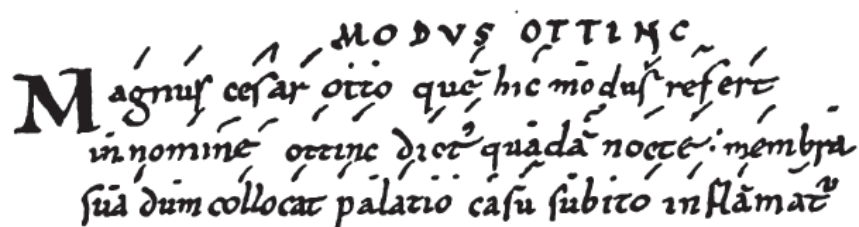 MODVS OTTINC
Magnuſ ceſar otto quē hic moduſ refert
in nomine ottinc dictꝰ quādā nocte· membra
ſua dum collocat palatio caſu ſubito inflāmatᷣ